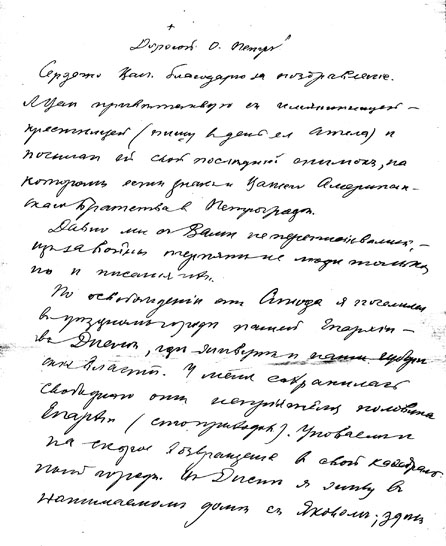 +
Дорогой о. Петръ
Сердечно Вас благодарю за поздравление.
Я Уап приветствую съ именинницей –
крестницей (пишу в день ея Ангела) и
посылаю ей свой последний снимок, на
котором есть значек Вашего Американ-
скаго Братства в Петрограде.
Давно мы с Вами не переписывались, –
из за войны терпят не люди только
но и писания их.
По освобождении от Синода я поселился
в уездном городе нашей Епархии –
в Дисне, где теперь и наши губерн
ския власти. У меня сохранилась
свободною от неприятеля половина
Епархии (сто приходов). Уповаем
на скорое возвращение в свой кафедраль
ный город. В Дисне я живу в
нанимаемом доме съ Яковом; здесь